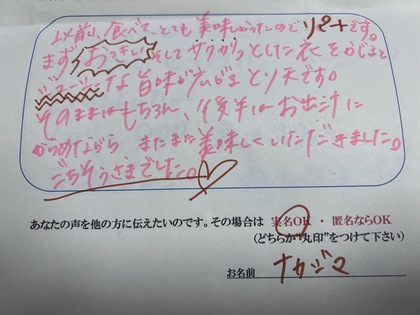 以前、食べて、とても美味しかったのでリピートです。
まず おっきい そしてサクがつとした衣をかじると
ジューシーな旨味が広がるとり天です。
そのままはもちろん、後半はお出汁に
からめながら またまた美味しくいただきました。
ごちそうさまでした。♡
あなたの声を他の方に伝えたいのです。その場合は 実名OK ・ 匿名ならOK
(どちらか"丸印"をつけて下さい)
お名前 ナカジマ